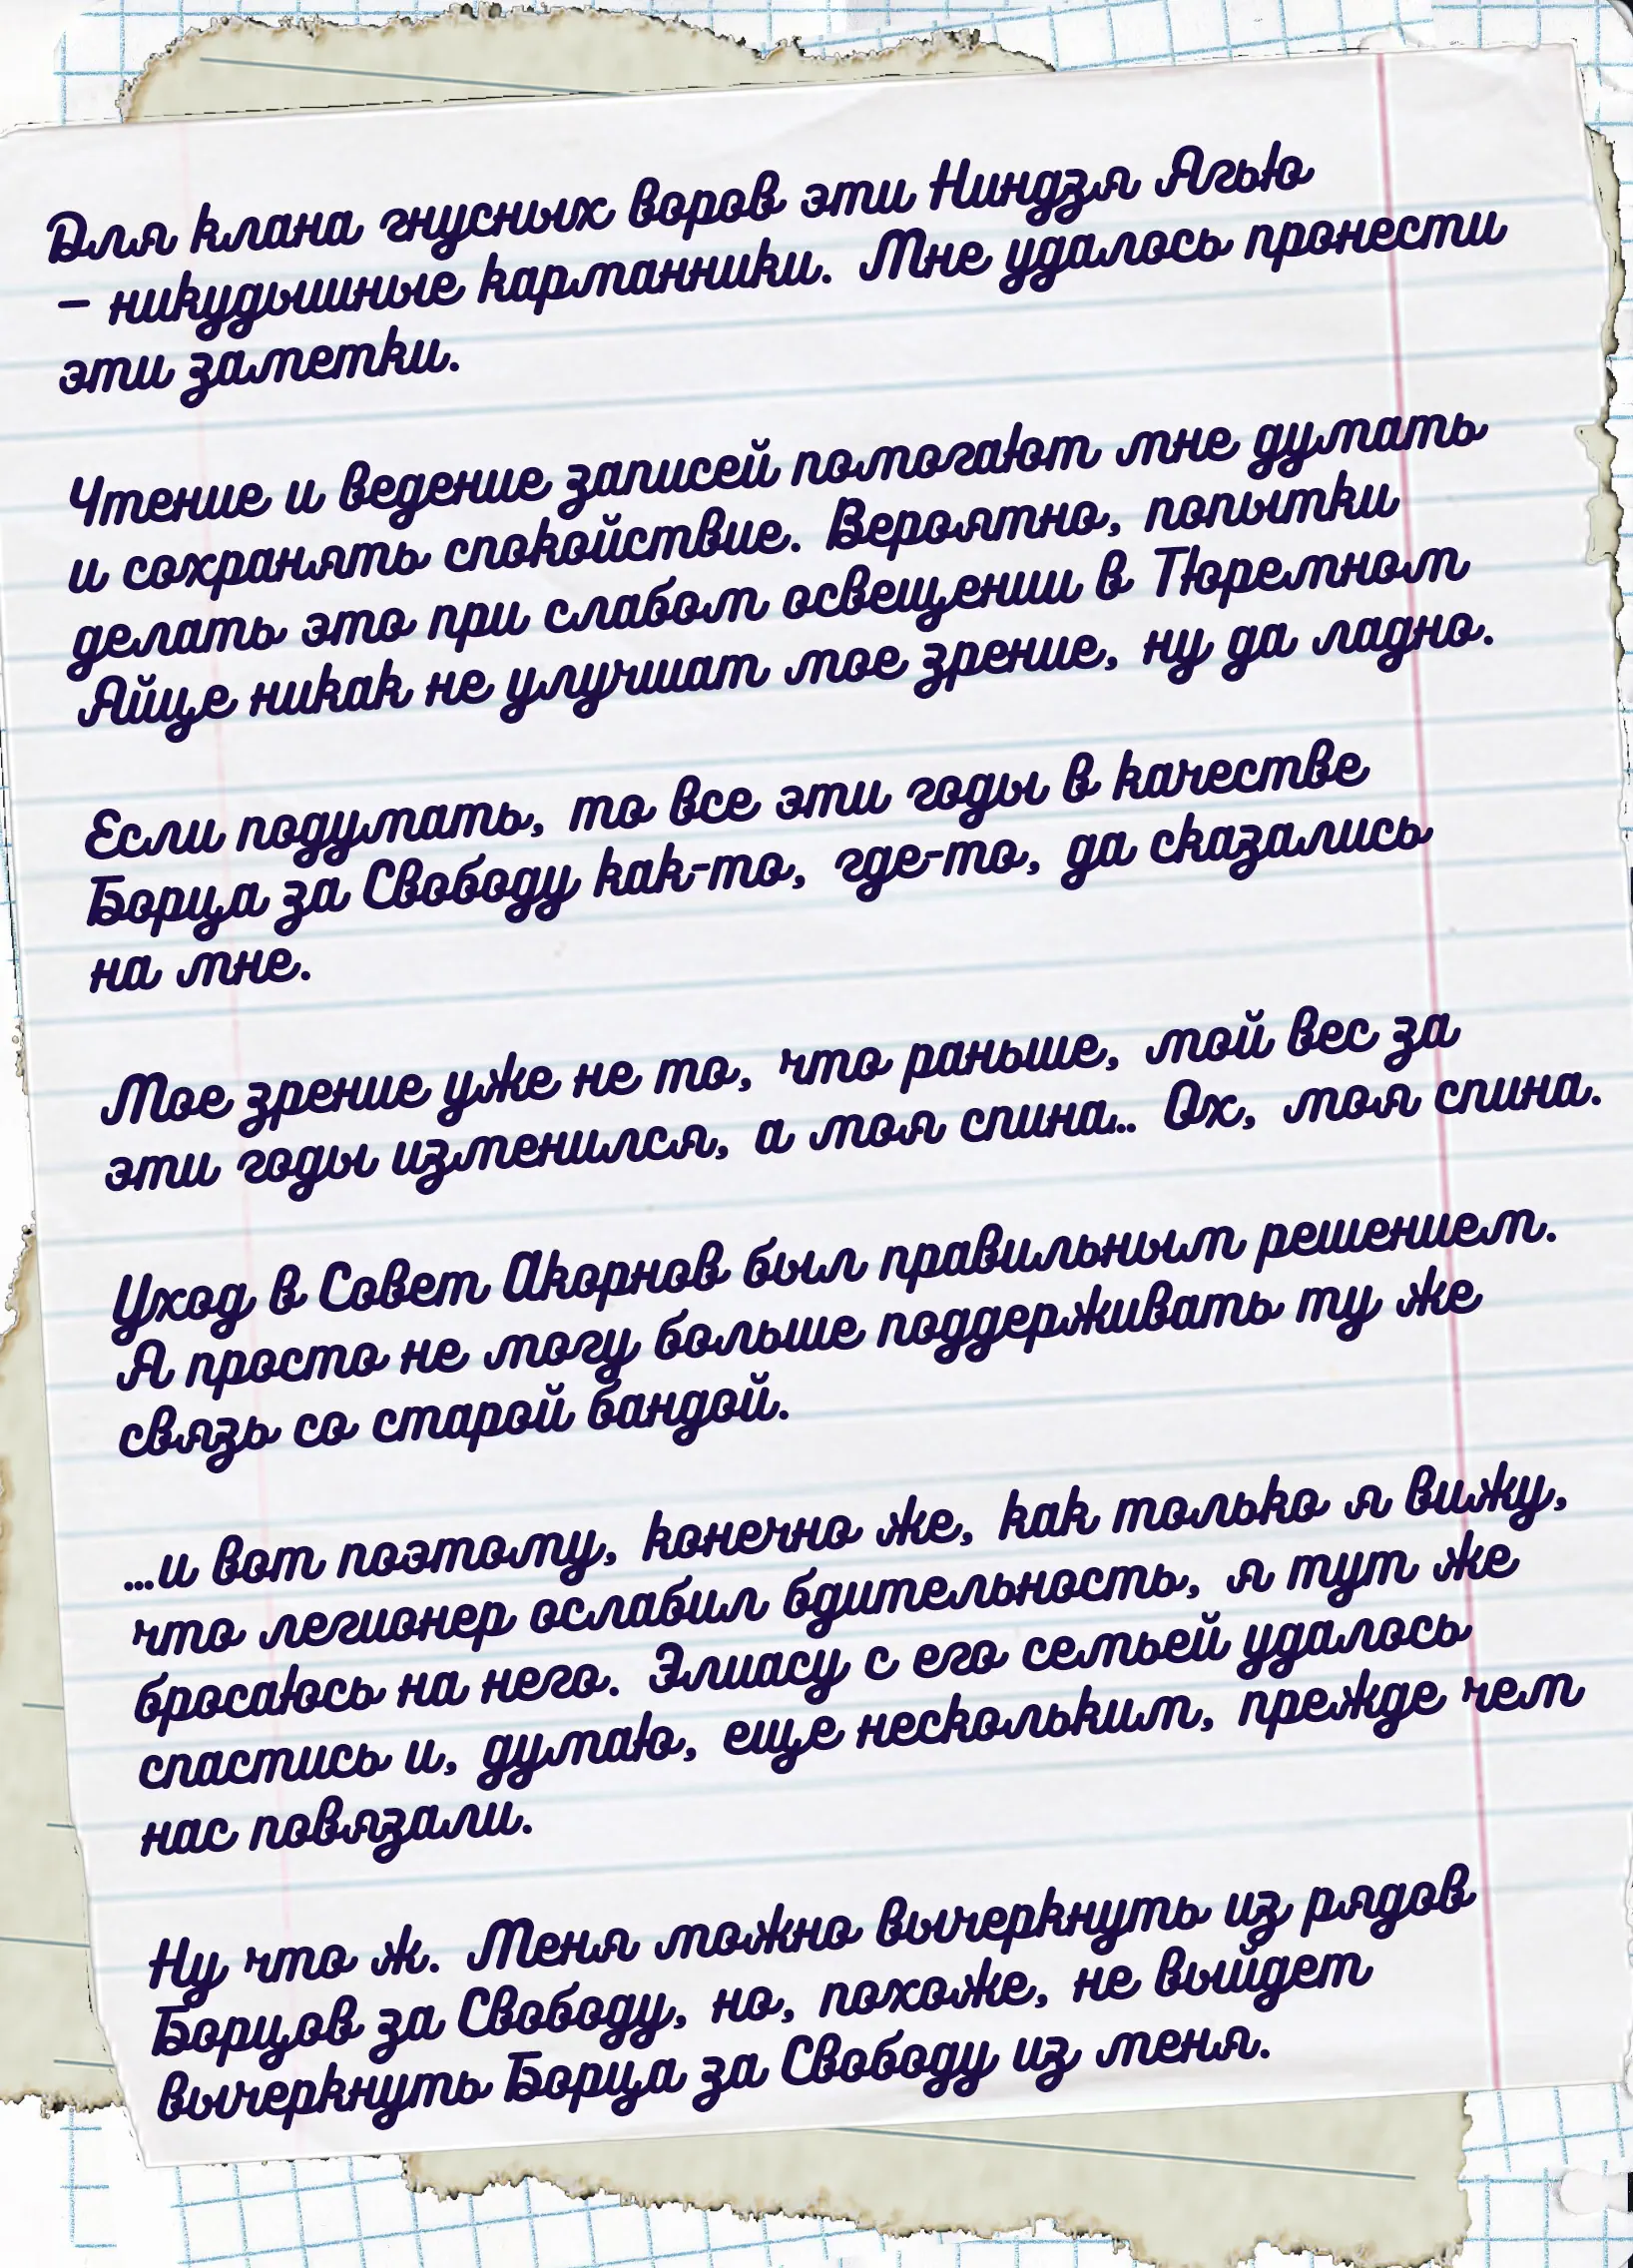 Для клана гнусных воров эти Ниндзя Ягью
– никудышные карманники. Мне удалось пронести
эти заметки.
Чтение и ведение записей помогают мне думать
и сохранять спокойствие. Вероятно, попытки
делать это при слабом освещении в Тюремном
Яйце никак не улучшат мое зрение, ну да ладно.
Если подумать, то все эти годы в качестве
Борца за Свободу как-то, где-то, да сказались
на мне.
Мое зрение уже не то, что раньше, мой вес за
эти годы изменился, а моя спина... Ох, моя спина.
Уход в Совет Акорнов был правильным решением.
Я просто не могу больше поддерживать ту же
связь со старой бандой.
...и вот поэтому, конечно же, как только я вижу,
что легионер ослабил бдительность, я тут же
бросаюсь на него. Элиасу с его семьей удалось
спастись и, думаю, еще нескольким, прежде чем
нас повязали.
Ну что ж. Меня можно вычеркнуть из рядов
Борцов за Свободу, но, похоже, не выйдет
вычеркнуть Борца за Свободу из меня.